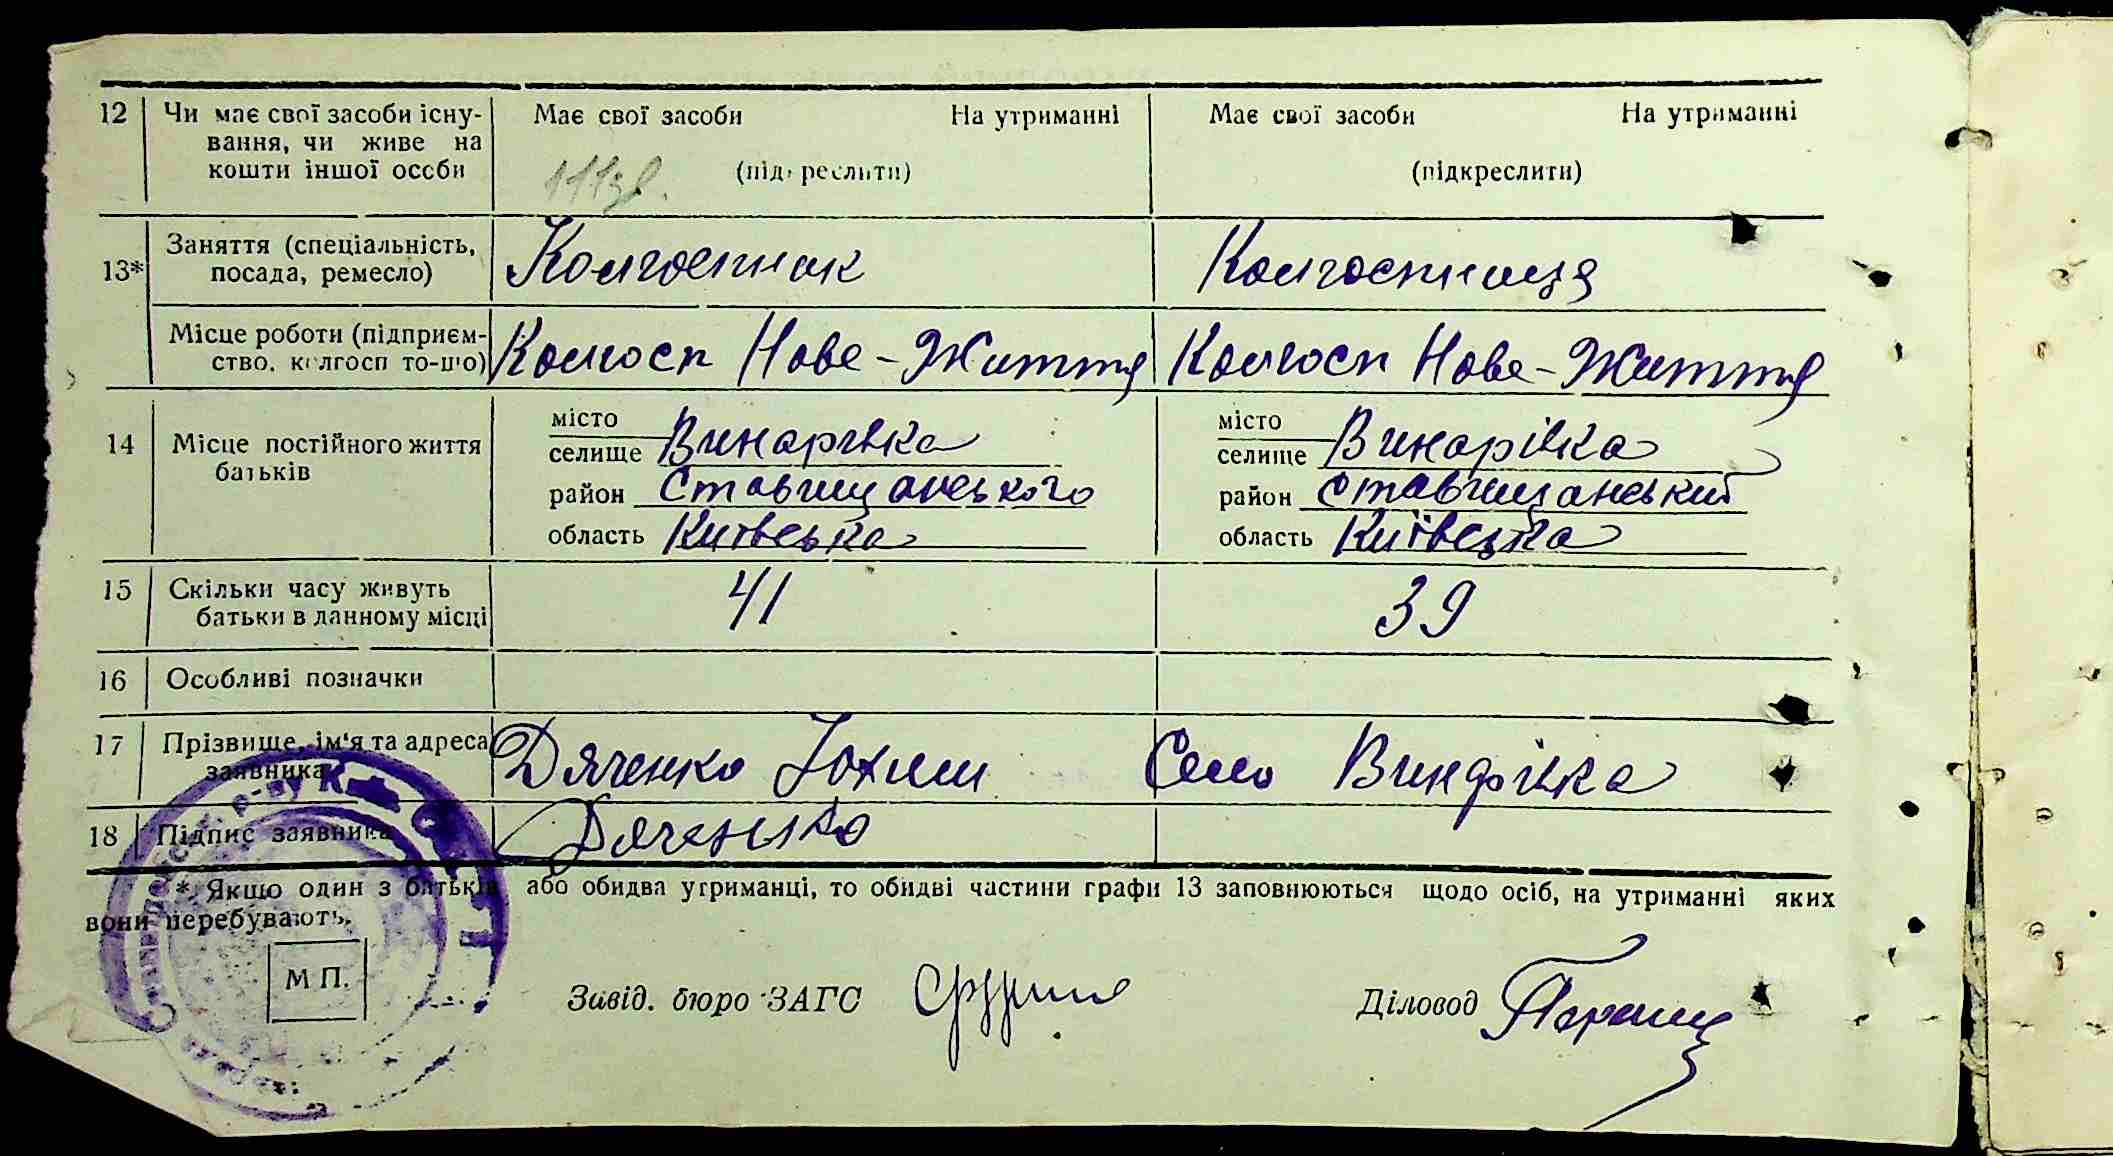 12 Чи має свої засоби існу- Має свої засоби На утриманні Має свої засоби На утриманні
вання, чи живе на
кошти іншої особи (підкреслити) (підкреслити)
13* Заняття (спеціальність, Колгоспник Колгоспниця
посада, ремесло)
Місце роботи (підприєм- Колгосп Нове-Життя Колгосп Нове-Життя
ство, колгосп то-що)
місто місто
14 Місце постійного життя селище Винарівка селище Винарівка
батьків район Ставищанського район Ставищанський
область Київська область Київська
15 Скільки часу живуть 41 39
батьки в данному місці
16 Особливі позначки
17 Прізвище, ім'я та адреса Дяченко Юхим Село Винарівка
заявника
18 Підпис заявника Дяченко
* Якщо один з батьків або обидва утриманці, то обидві частини графи 13 заповнюються щодо осіб, на утриманні яких
вони перебувають.
М П.
Завід. бюро ЗАГС Діловод